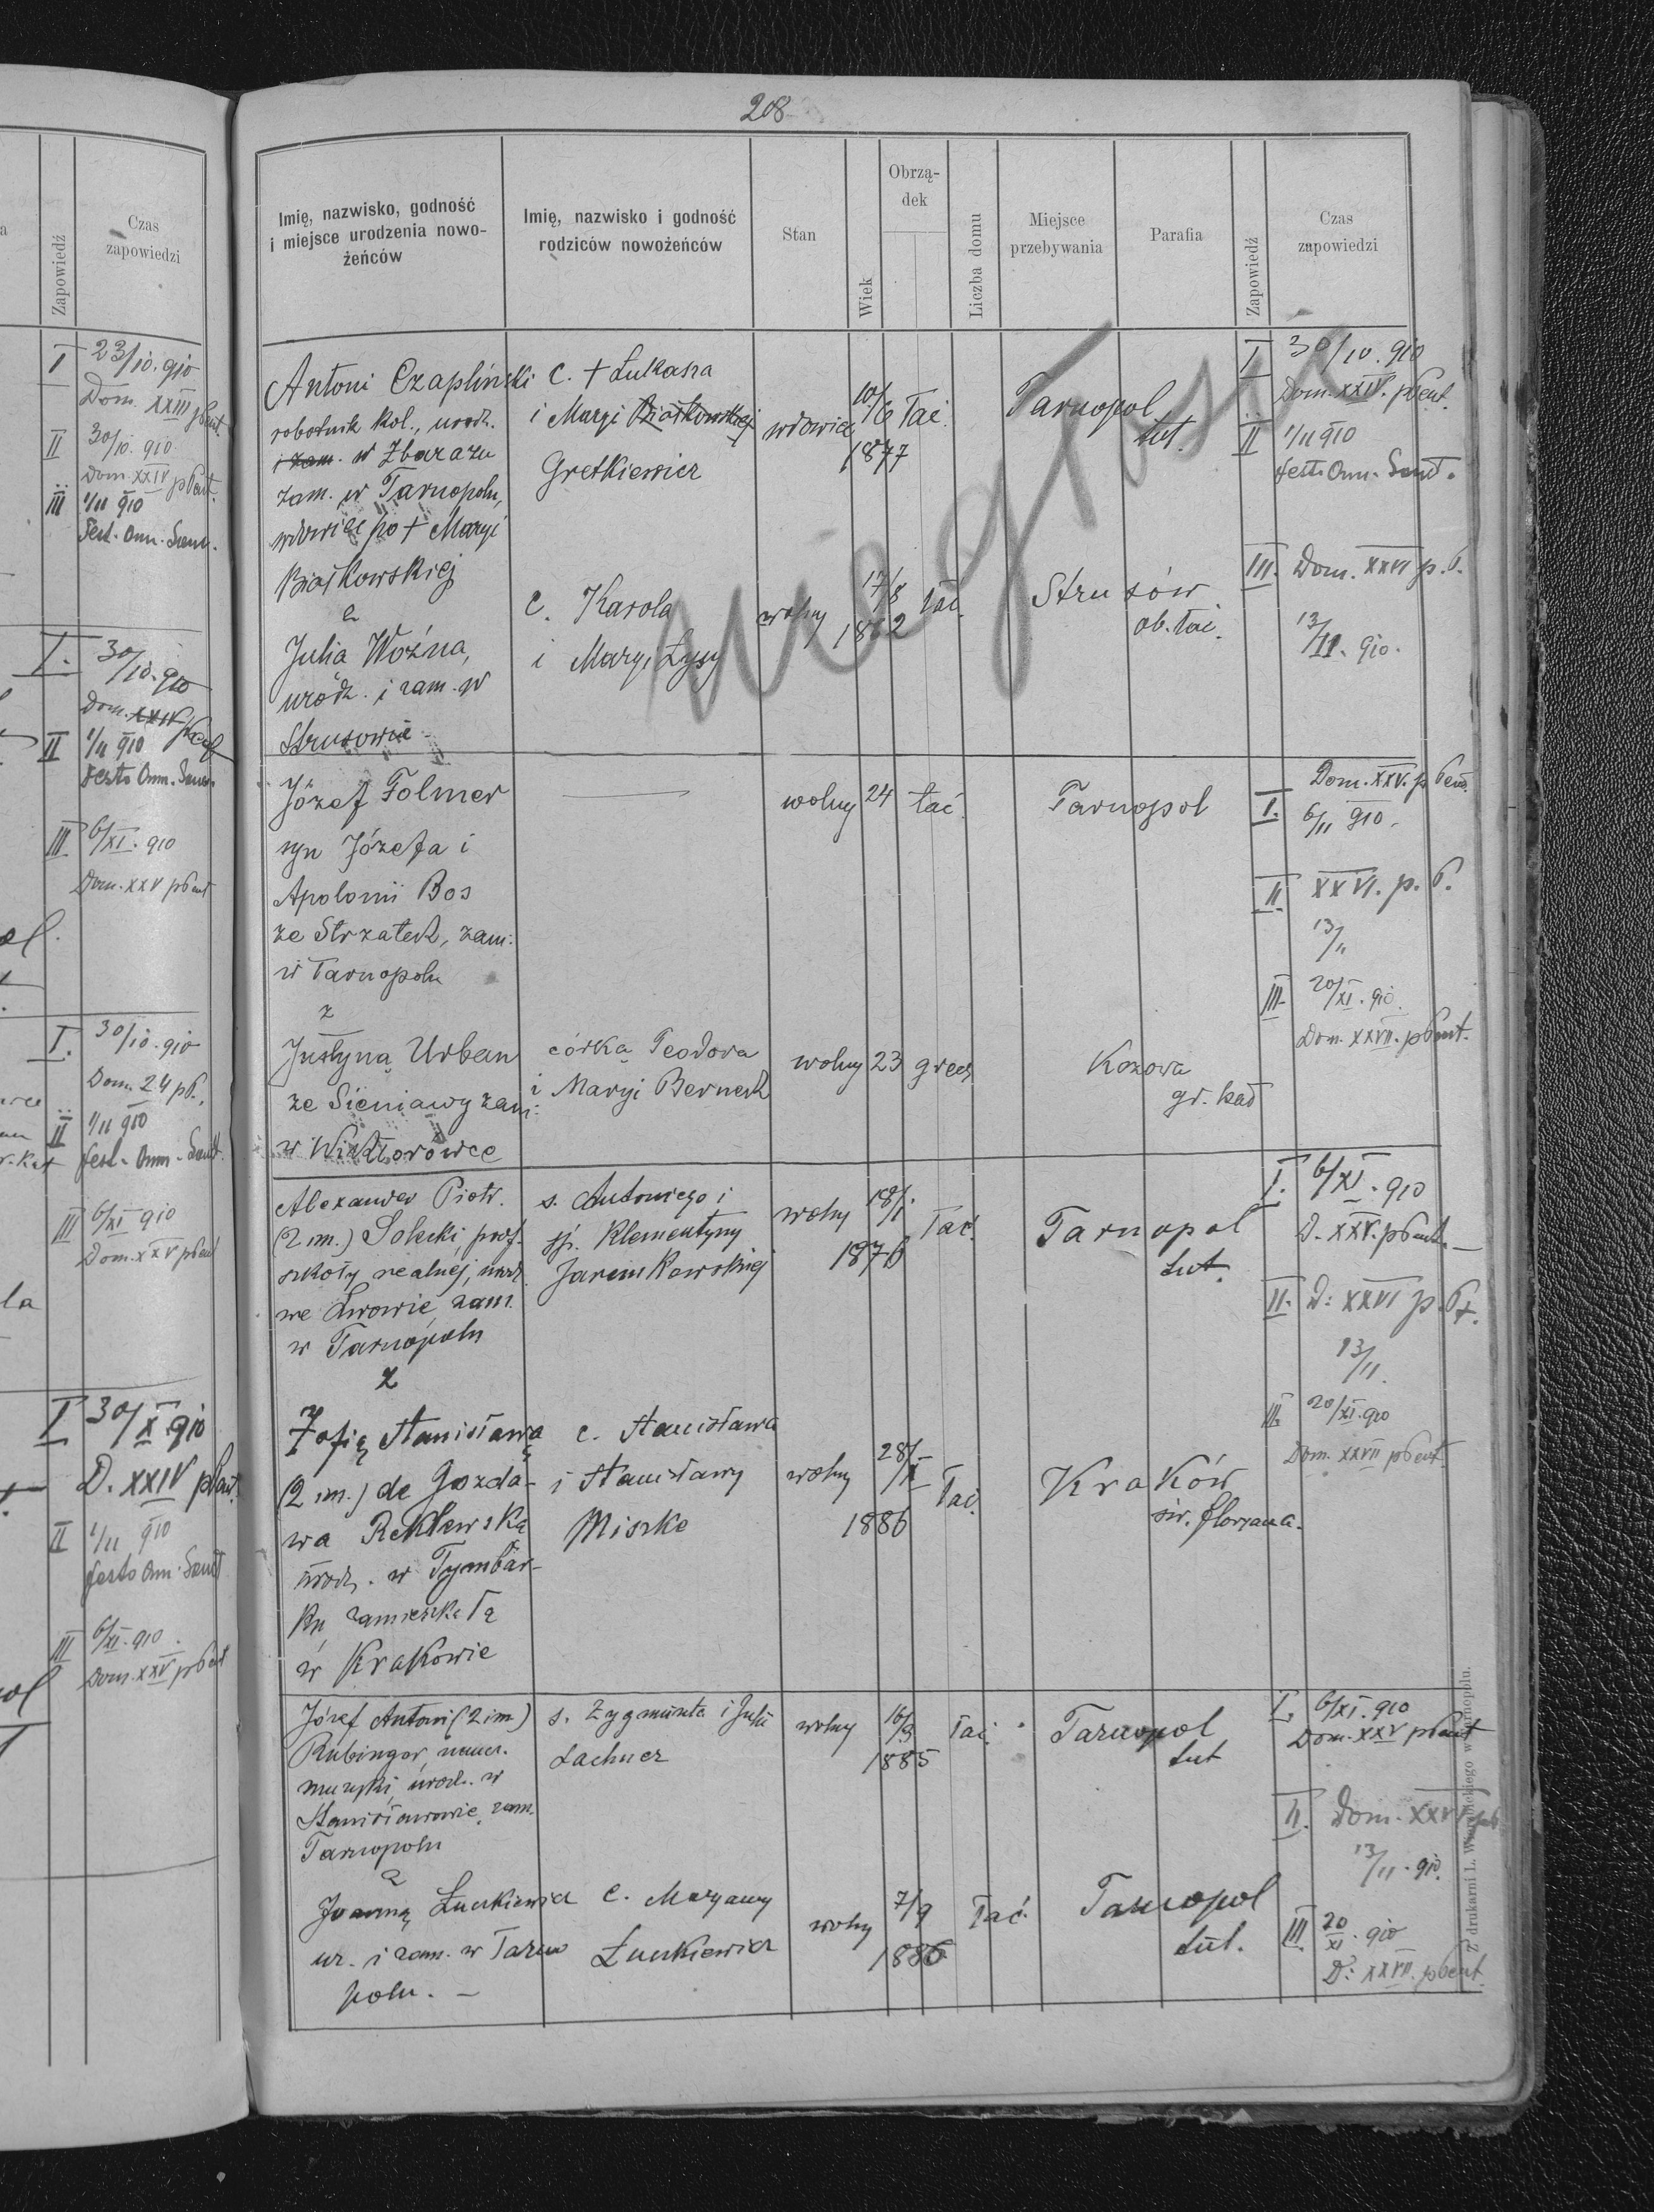 208
Imię, nazwisko, godność
i miejsce urodzenia nowo-
żeńców
Imię, nazwisko i godność
rodziców nowożeńców
Stan
Wiek
Obrzą-
dek
Liczba domu
Miejsce
przebywania
Parafia
Zapowiedź
Czas
zapowiedzi
Zapowiedź
Czas
zapowiedzi
I 23/10. 910
Dom. XXIII pPent.
II 30/10. 910
Dom. XXIV pPent.
III 1/11 910
Fest. Omn. Sanct.
I. 30/10. 910
Dom. XXIV
II 1/11 910
Festo Omn. Sanct.
III 6/XI. 910
Dom. XXV pPent
I. 30/10. 910
Dom. 24 pP.
II 1/11 910
fest. Omn. Sanct.
III 6/XI 910
Dom. XXV pPent
I 30/X 910
D. XXIV pPent.
II 1/11 910
festo Omn. Sanct
III 6/XI. 910
Dom. XXV pPent
Antoni Czapliński
robotnik kol., urodz.
i zam. w Zbarażu
zam. w Tarnopolu,
wdowiec po + Maryi
Białkowskiej
z
Julia Woźna,
urodz. i zam. w
Strusowie
C. + Łukasza
i Maryi Białkowskiej
Gretkiewicz
c. Karola
i Maryi Łysy
wdowiec
10/6 1877
łać.
Tarnopol
tut.
wolny
17/8
łać.
Strusów
ob. łać.
I 30/10. 910
Dom. XXIV. pPent.
II 1/11 910
Festo Omn. Sanct.
III. Dom. XXVI p. P.
13/11. 910.
Józef Folmer
syn Józefa i
Apolonii Bos
ze Strzałek, zam.
w Tarnopolu
z
Justyną Urban
ze Sieniawy zam.
w Wiktorówce
córką Teodora
i Maryi Bernek
wolny 24 łać.
Tarnopol
wolny 23 grec.
Kozowa
gr. kat
Dom. XXV. p Pent.
I. 6/11 910.
II XXVI. p. P.
13/11
III 20/XI. 910.
Dom. XXVII. pPent.
Alexander Piotr.
(2 im.) Solecki, prof.
szkoły realnej, urodz.
we Lwowie, zam.
w Tarnopolu
z
Zofią Stanisławą
(2 im.) de Gozda-
wa Reklewską
urodz. w Tymbar-
ku zamieszkałą
w Krakowie
s. Antoniego i
śp. Klementyny
c. Stanisława
i Stanisławy
Miszke
wolny
18/1. 1876
łać.
Tarnopol
tut.
wolny
28/X 1886
łać.
Kraków
św. Floryana.
I. 6/XI. 910
D. XXV. pPent. —
II. D: XXVI p. Pt.
13/11.
III. 20/XI. 910
Dom. XXVII pPent
Józef Antoni (2 im.)
Rubinger, naucz.
muzyki, urodz. w
Stanisławowie, zam.
Tarnopolu
z
Joanną Łuckiewicz
ur. i zam. w Tarno
polu. —
s. Zygmunta i Julii
Lachner
c. Maryanny
Łuckiewicz
wolny
16/3 1885
łać.
Tarnopol
tut
wolny
7/9 1886
łać.
Tarnopol
tut.
I. 6/XI. 910
Dom. XXV pPent
II. Dom. XXVI
13/11. 910.
III 20/XI. 910
D: XXVII. pPent.